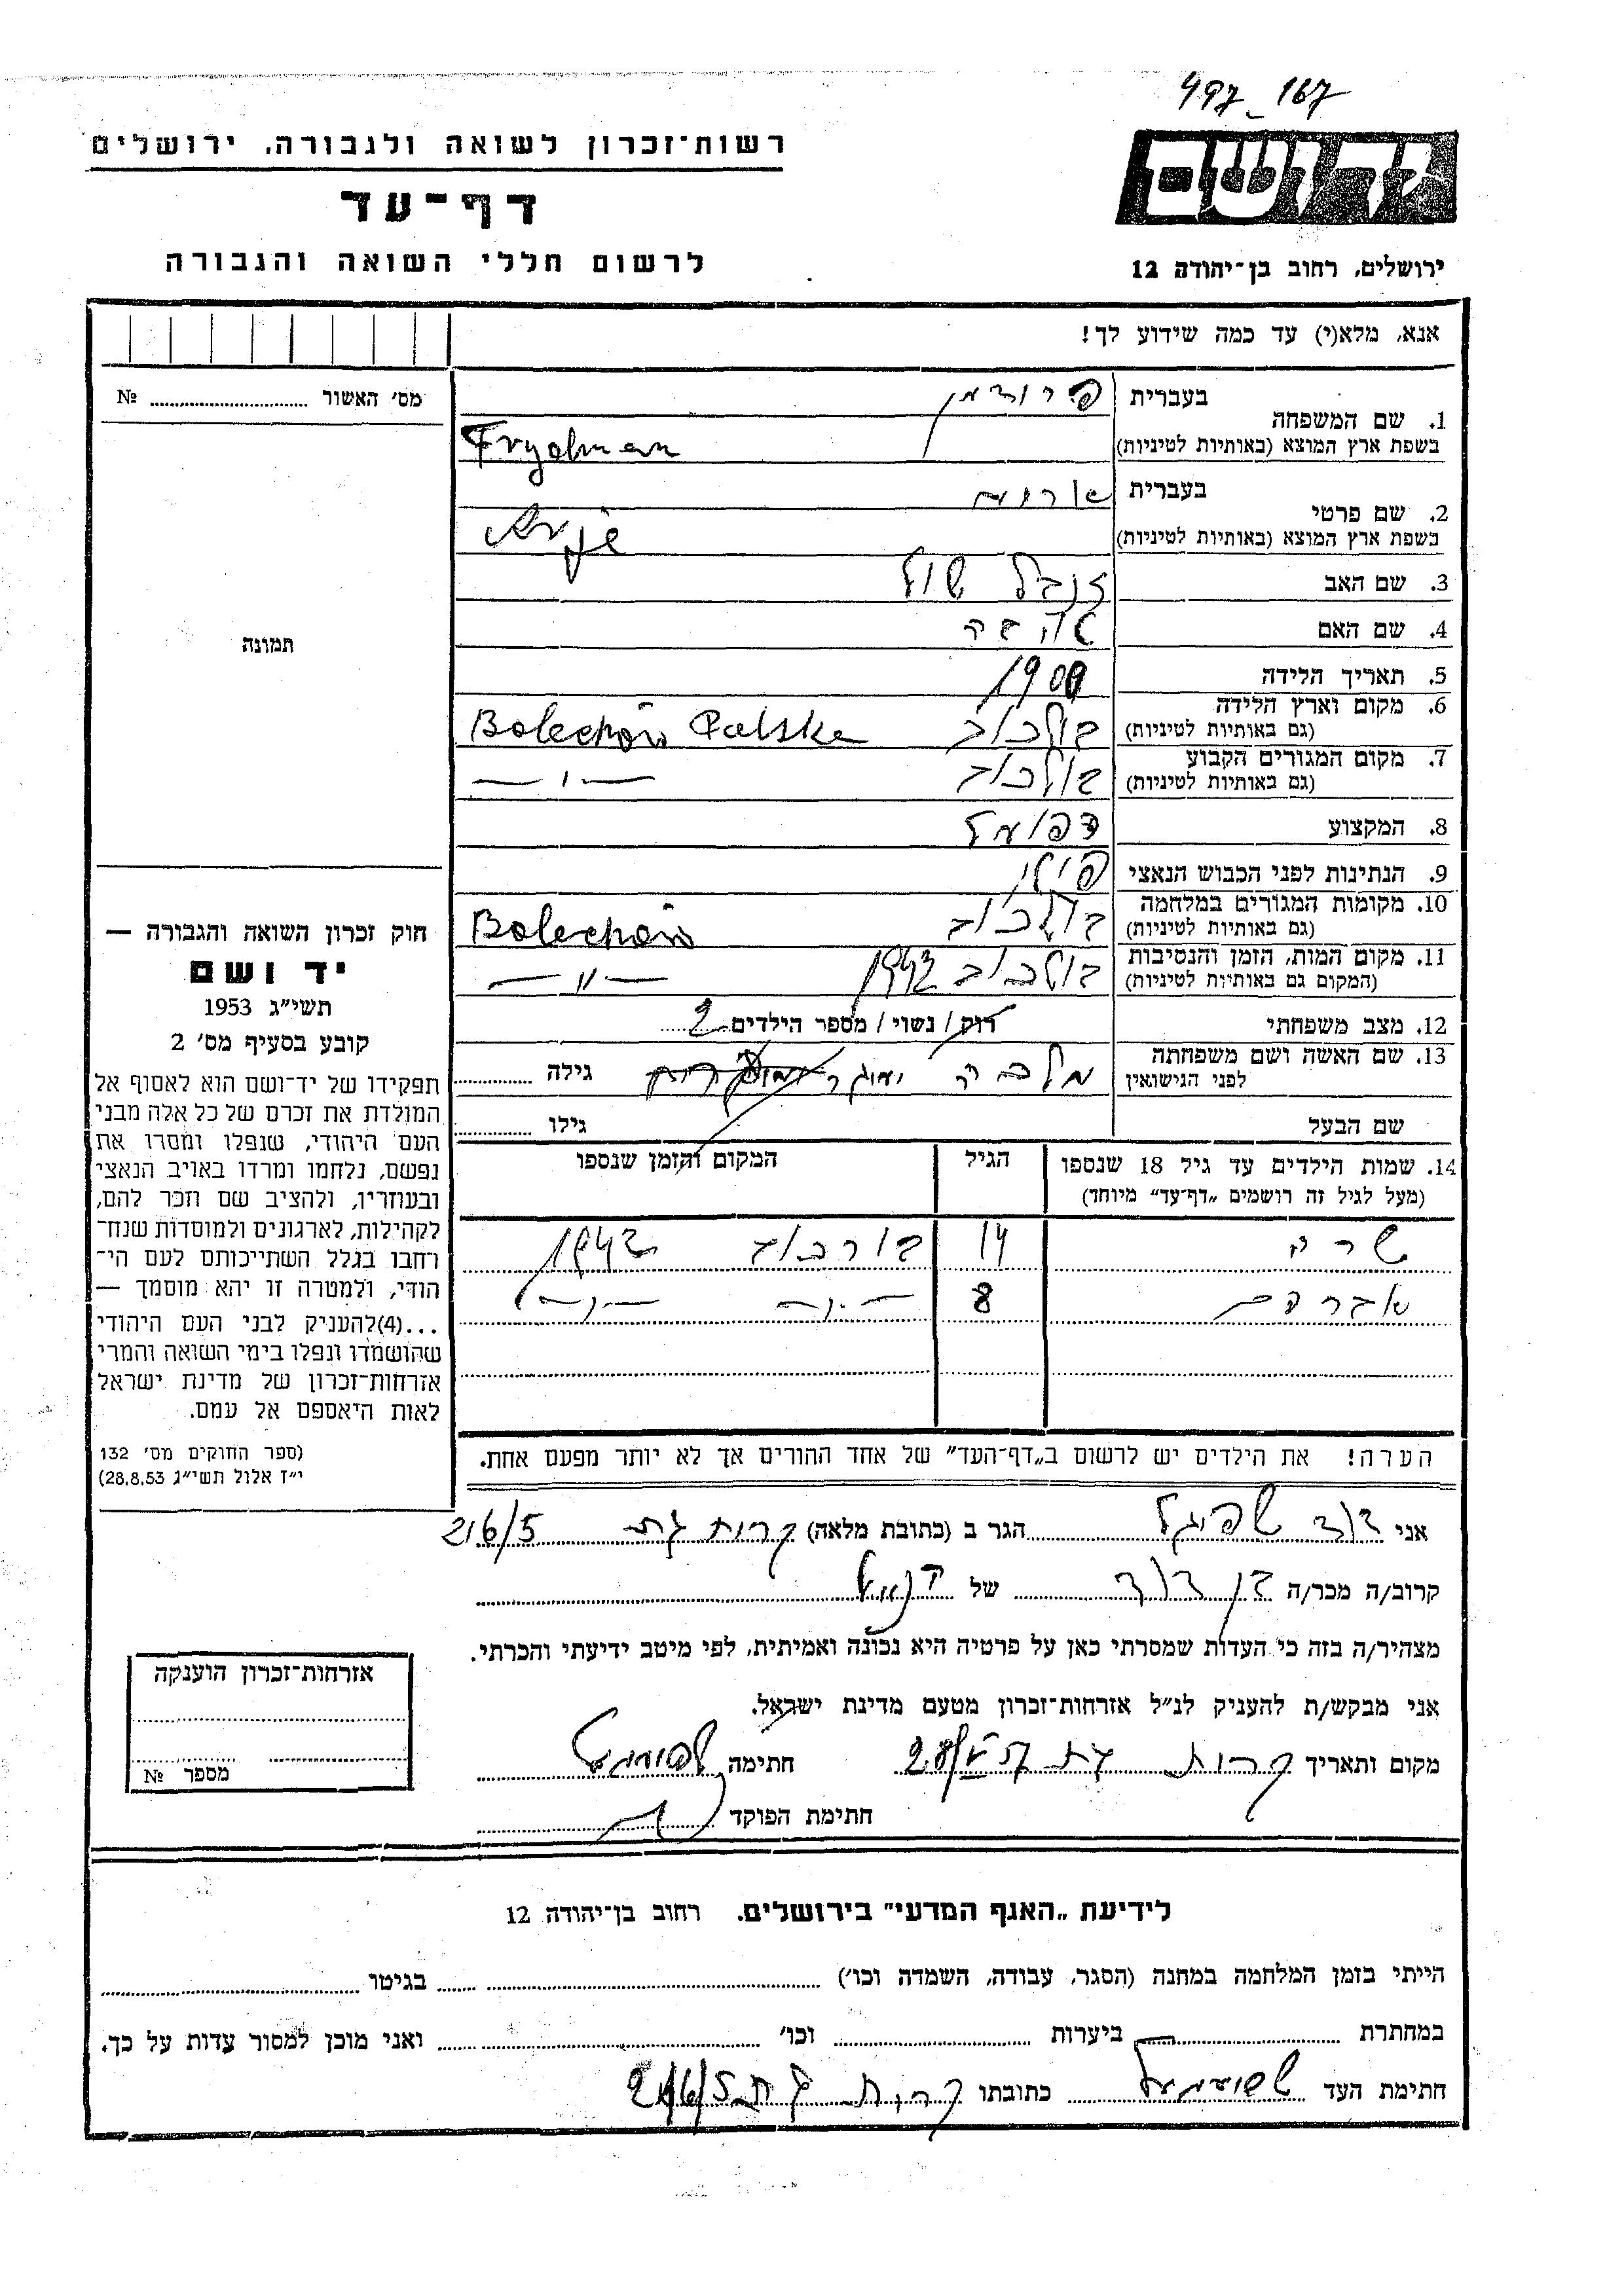 497-167
יד ושם
רשות־זכרון לשואה ולגבורה. ירושלים
דף־עד
לרשום חללי השואה והגבורה
ירושלים, רחוב בן־יהודה 12
אנא, מלא(י) עד כמה שידוע לך!
מס׳ האשור № ..........
תמונה
1. שם המשפחה
בעברית פרידמן
בשפת ארץ המוצא (באותיות לטיניות) Frydman
2. שם פרטי
בעברית
בשפת ארץ המוצא (באותיות לטיניות) Arje
3. שם האב
4. שם האם
5. תאריך הלידה 1900
6. מקום וארץ הלידה
(גם באותיות לטיניות) בולכוב Bolechów Polska
7. מקום המגורים הקבוע
(גם באותיות לטיניות) בולכוב —"—
8. המקצוע
9. הנתינות לפני הכבוש הנאצי פולני
10. מקומות המגורים במלחמה
(גם באותיות לטיניות) בולכוב Bolechów
11. מקום המות, הזמן והנסיבות
(המקום גם באותיות לטיניות) בולכוב 1942 —"—
12. מצב משפחתי רוק / נשוי / מספר הילדים 2
13. שם האשה ושם משפחתה
לפני הנישואין מלכה גילה ..........
שם הבעל גילו ..........
14. שמות הילדים עד גיל 18 שנספו
(מעל לגיל זה רושמים „דף־עד” מיוחד)
הגיל
המקום והזמן שנספו
שרה 14 בולכוב 1942
אברהם 8 —"— —"—
הערה! את הילדים יש לרשום ב„דף־העד” של אחד ההורים אך לא יותר מפעם אחת.
חוק זכרון השואה והגבורה —
יד ושם
תשי״ג 1953
קובע בסעיף מס׳ 2
תפקידו של יד־ושם הוא לאסוף אל
המולדת את זכרם של כל אלה מבני
העם היהודי, שנפלו ומסרו את
נפשם, נלחמו ומרדו באויב הנאצי
ובעוזריו, ולהציב שם וזכר להם,
לקהילות, לארגונים ולמוסדות שנח־
רבו בגלל השתייכותם לעם הי־
הודי, ולמטרה זו יהא מוסמך —
...(4)להעניק לבני העם היהודי
שהושמדו ונפלו בימי השואה והמרי
אזרחות־זכרון של מדינת ישראל
לאות היאספם אל עמם.
(ספר החוקים מס׳ 132
י״ז אלול תשי״ג 28.8.53)
אני דוד שפיגל הגר ב (כתובת מלאה) קרית גת 216/5
קרוב/ה מכר/ה בן דוד של
מצהיר/ה בזה כי העדות שמסרתי כאן על פרטיה היא נכונה ואמיתית, לפי מיטב ידיעתי והכרתי.
אני מבקש/ת להעניק לנ״ל אזרחות־זכרון מטעם מדינת ישראל.
מקום ותאריך קרית גת חתימה
חתימת הפוקד
אזרחות־זכרון הוענקה
מספר №
לידיעת „האגף המדעי” בירושלים. רחוב בן־יהודה 12
הייתי בזמן המלחמה במחנה (הסגר, עבודה, השמדה וכו׳) .......... בגיטו ..........
במחתרת .......... ביערות .......... וכו׳ .......... ואני מוכן למסור עדות על כך.
חתימת העד כתובתו קרית גת 216/5